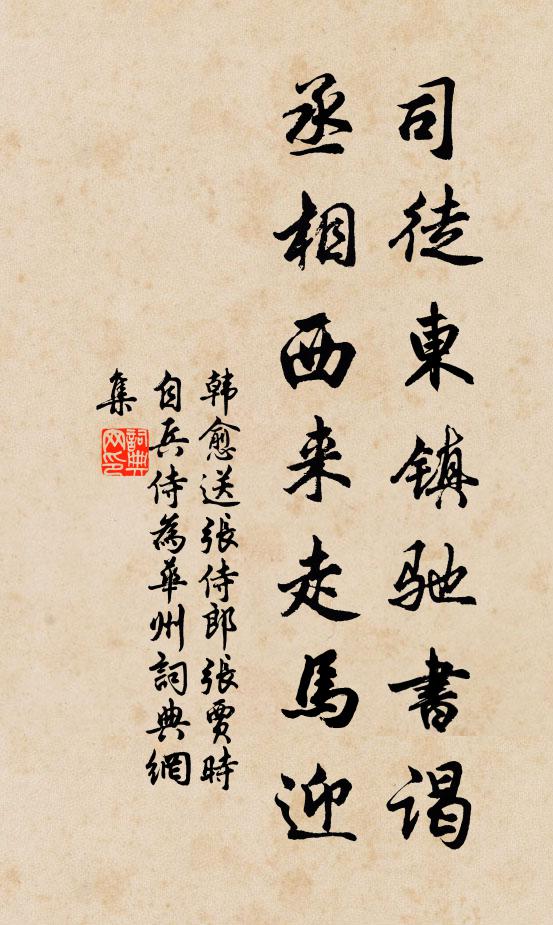 司徒東镇驰書谒
丞相西来走馬迎
韩愈送張侍郎張賈時
自兵侍為華州詞典網
集
詞典
网印